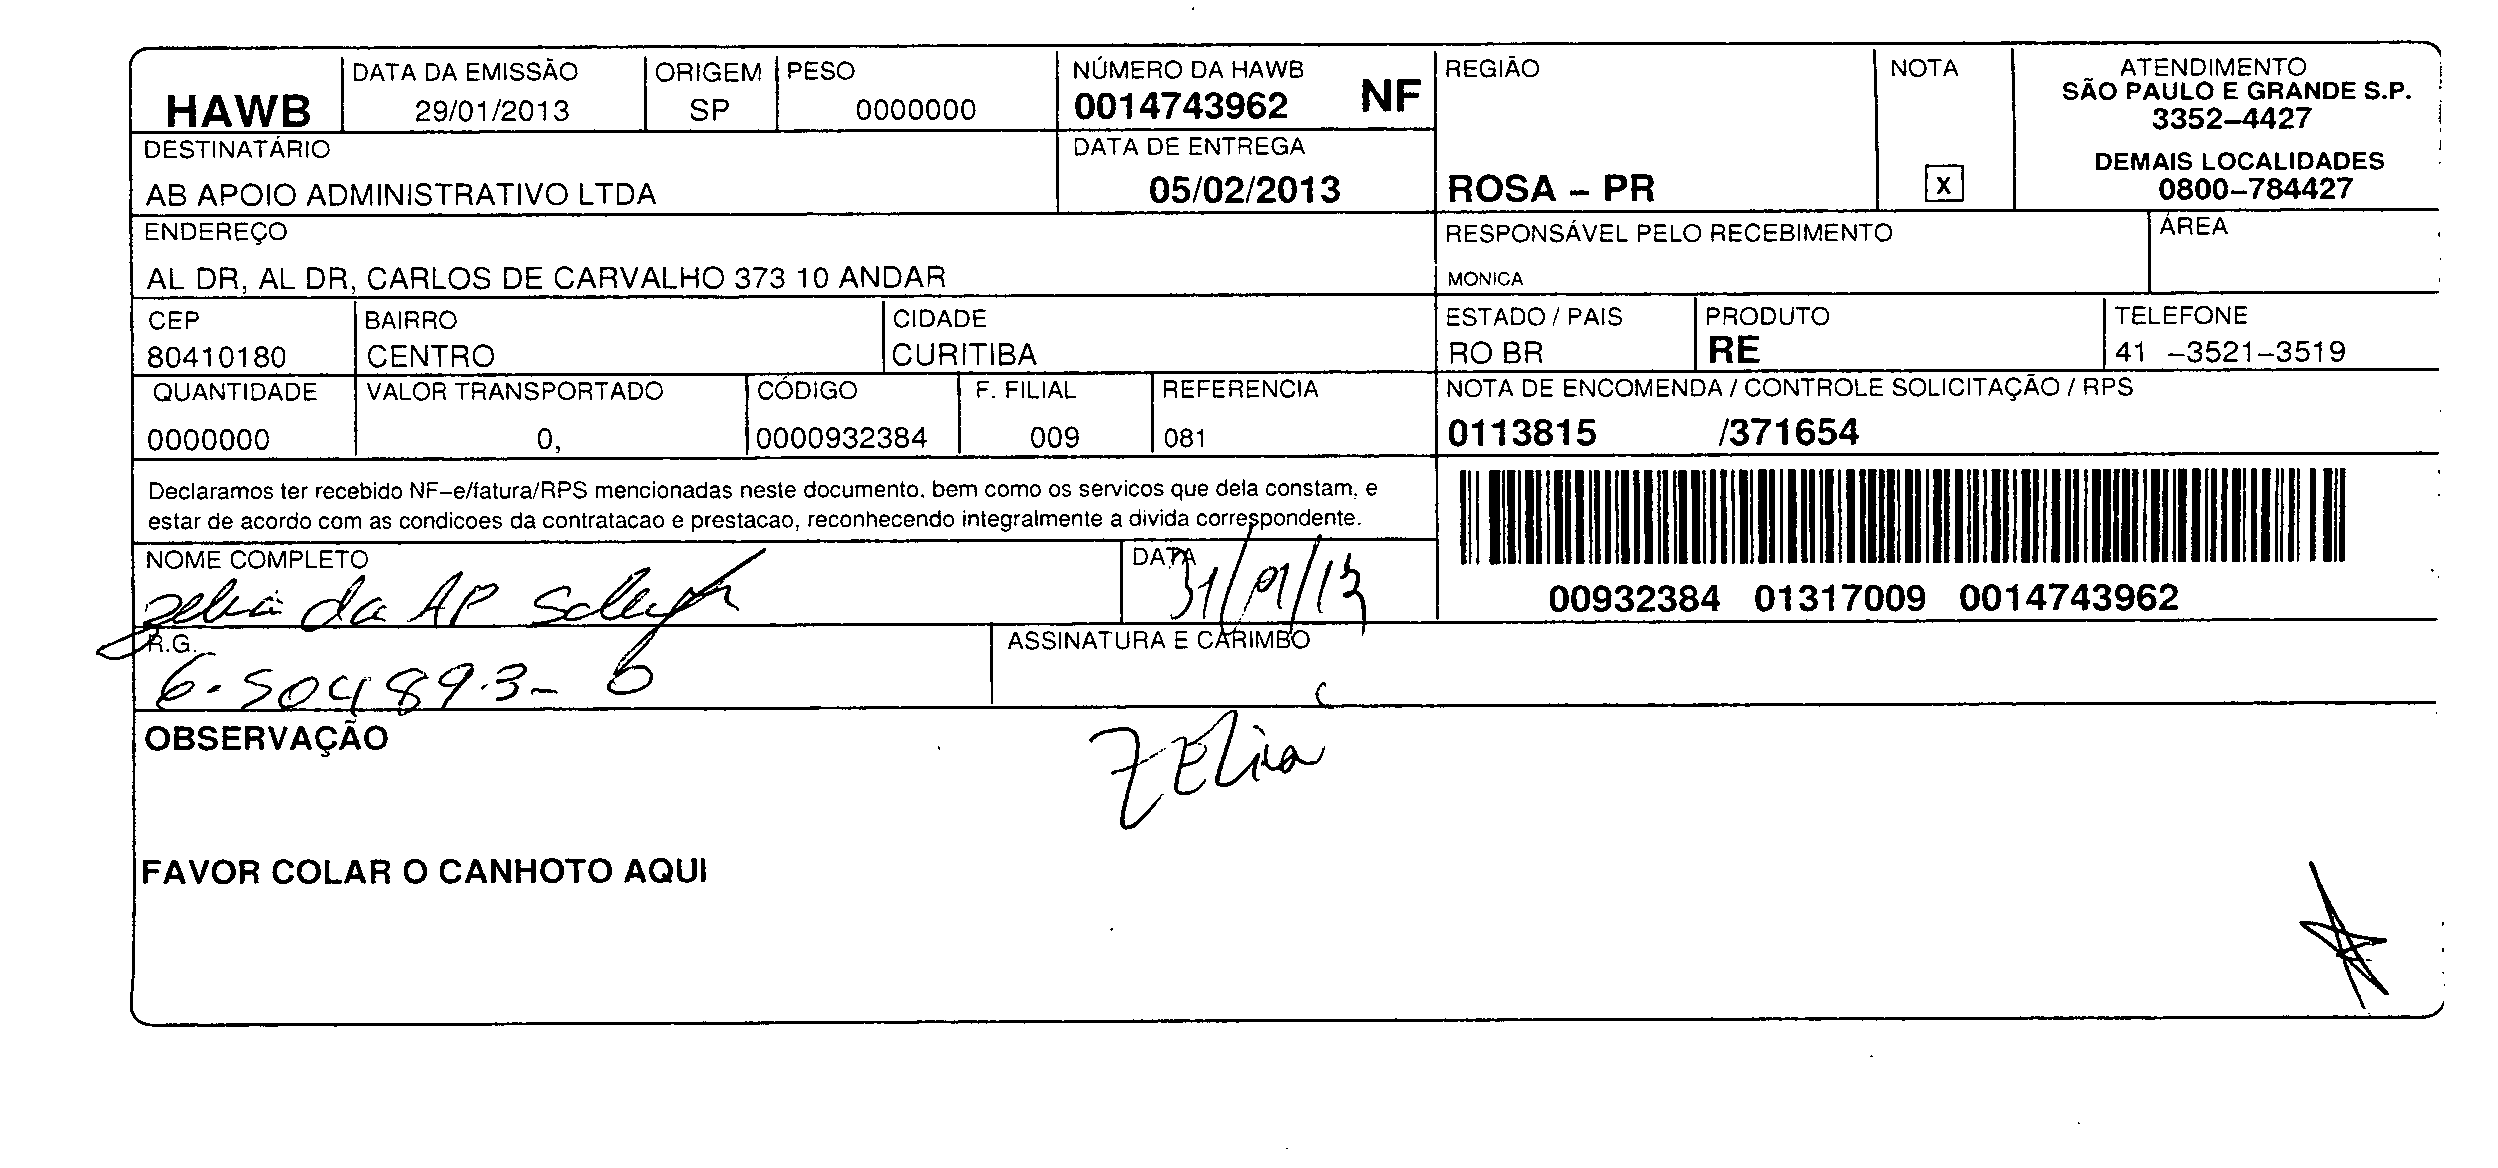 HAWB
DATA DA EMISSÃO
29/01/2013
ORIGEM
SP
PESO
0000000
NÚMERO DA HAWB
0014743962 NF
REGIÃO
ROSA – PR
NOTA
X
ATENDIMENTO
SÃO PAULO E GRANDE S.P.
3352–4427
DEMAIS LOCALIDADES
0800–784427
DESTINATÁRIO
AB APOIO ADMINISTRATIVO LTDA
DATA DE ENTREGA
05/02/2013
ENDEREÇO
AL DR, AL DR, CARLOS DE CARVALHO 373 10 ANDAR
RESPONSÁVEL PELO RECEBIMENTO
MONICA
ÁREA
CEP
80410180
BAIRRO
CENTRO
CIDADE
CURITIBA
ESTADO / PAIS
RO BR
PRODUTO
RE
TELEFONE
41 –3521–3519
QUANTIDADE
0000000
VALOR TRANSPORTADO
0,
CÓDIGO
0000932384
F. FILIAL
009
REFERENCIA
081
NOTA DE ENCOMENDA / CONTROLE SOLICITAÇÃO / RPS
0113815 /371654
Declaramos ter recebido NF–e/fatura/RPS mencionadas neste documento, bem como os servicos que dela constam, e
estar de acordo com as condicoes da contratacao e prestacao, reconhecendo integralmente a divida correspondente.
00932384 01317009 0014743962
NOME COMPLETO
da AP
DATA
31/01/13
R.G.
6.504893-6
ASSINATURA E CARIMBO
ZElia
OBSERVAÇÃO
FAVOR COLAR O CANHOTO AQUI